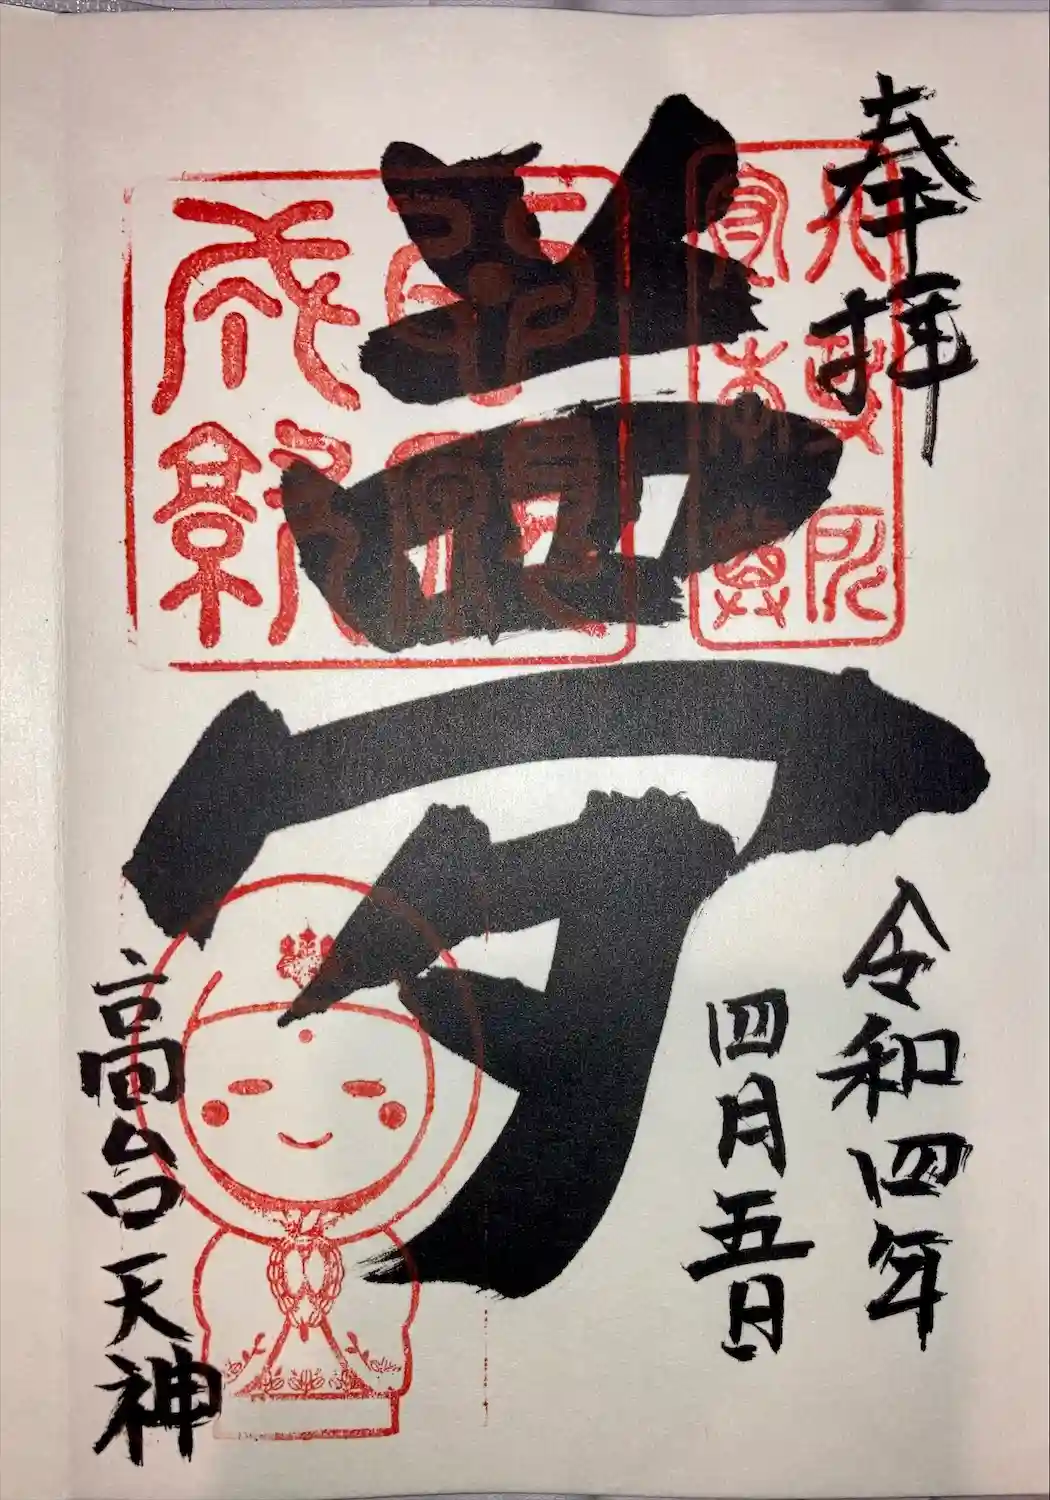 奉拝
令和四年
四月五日
夢
高台天神